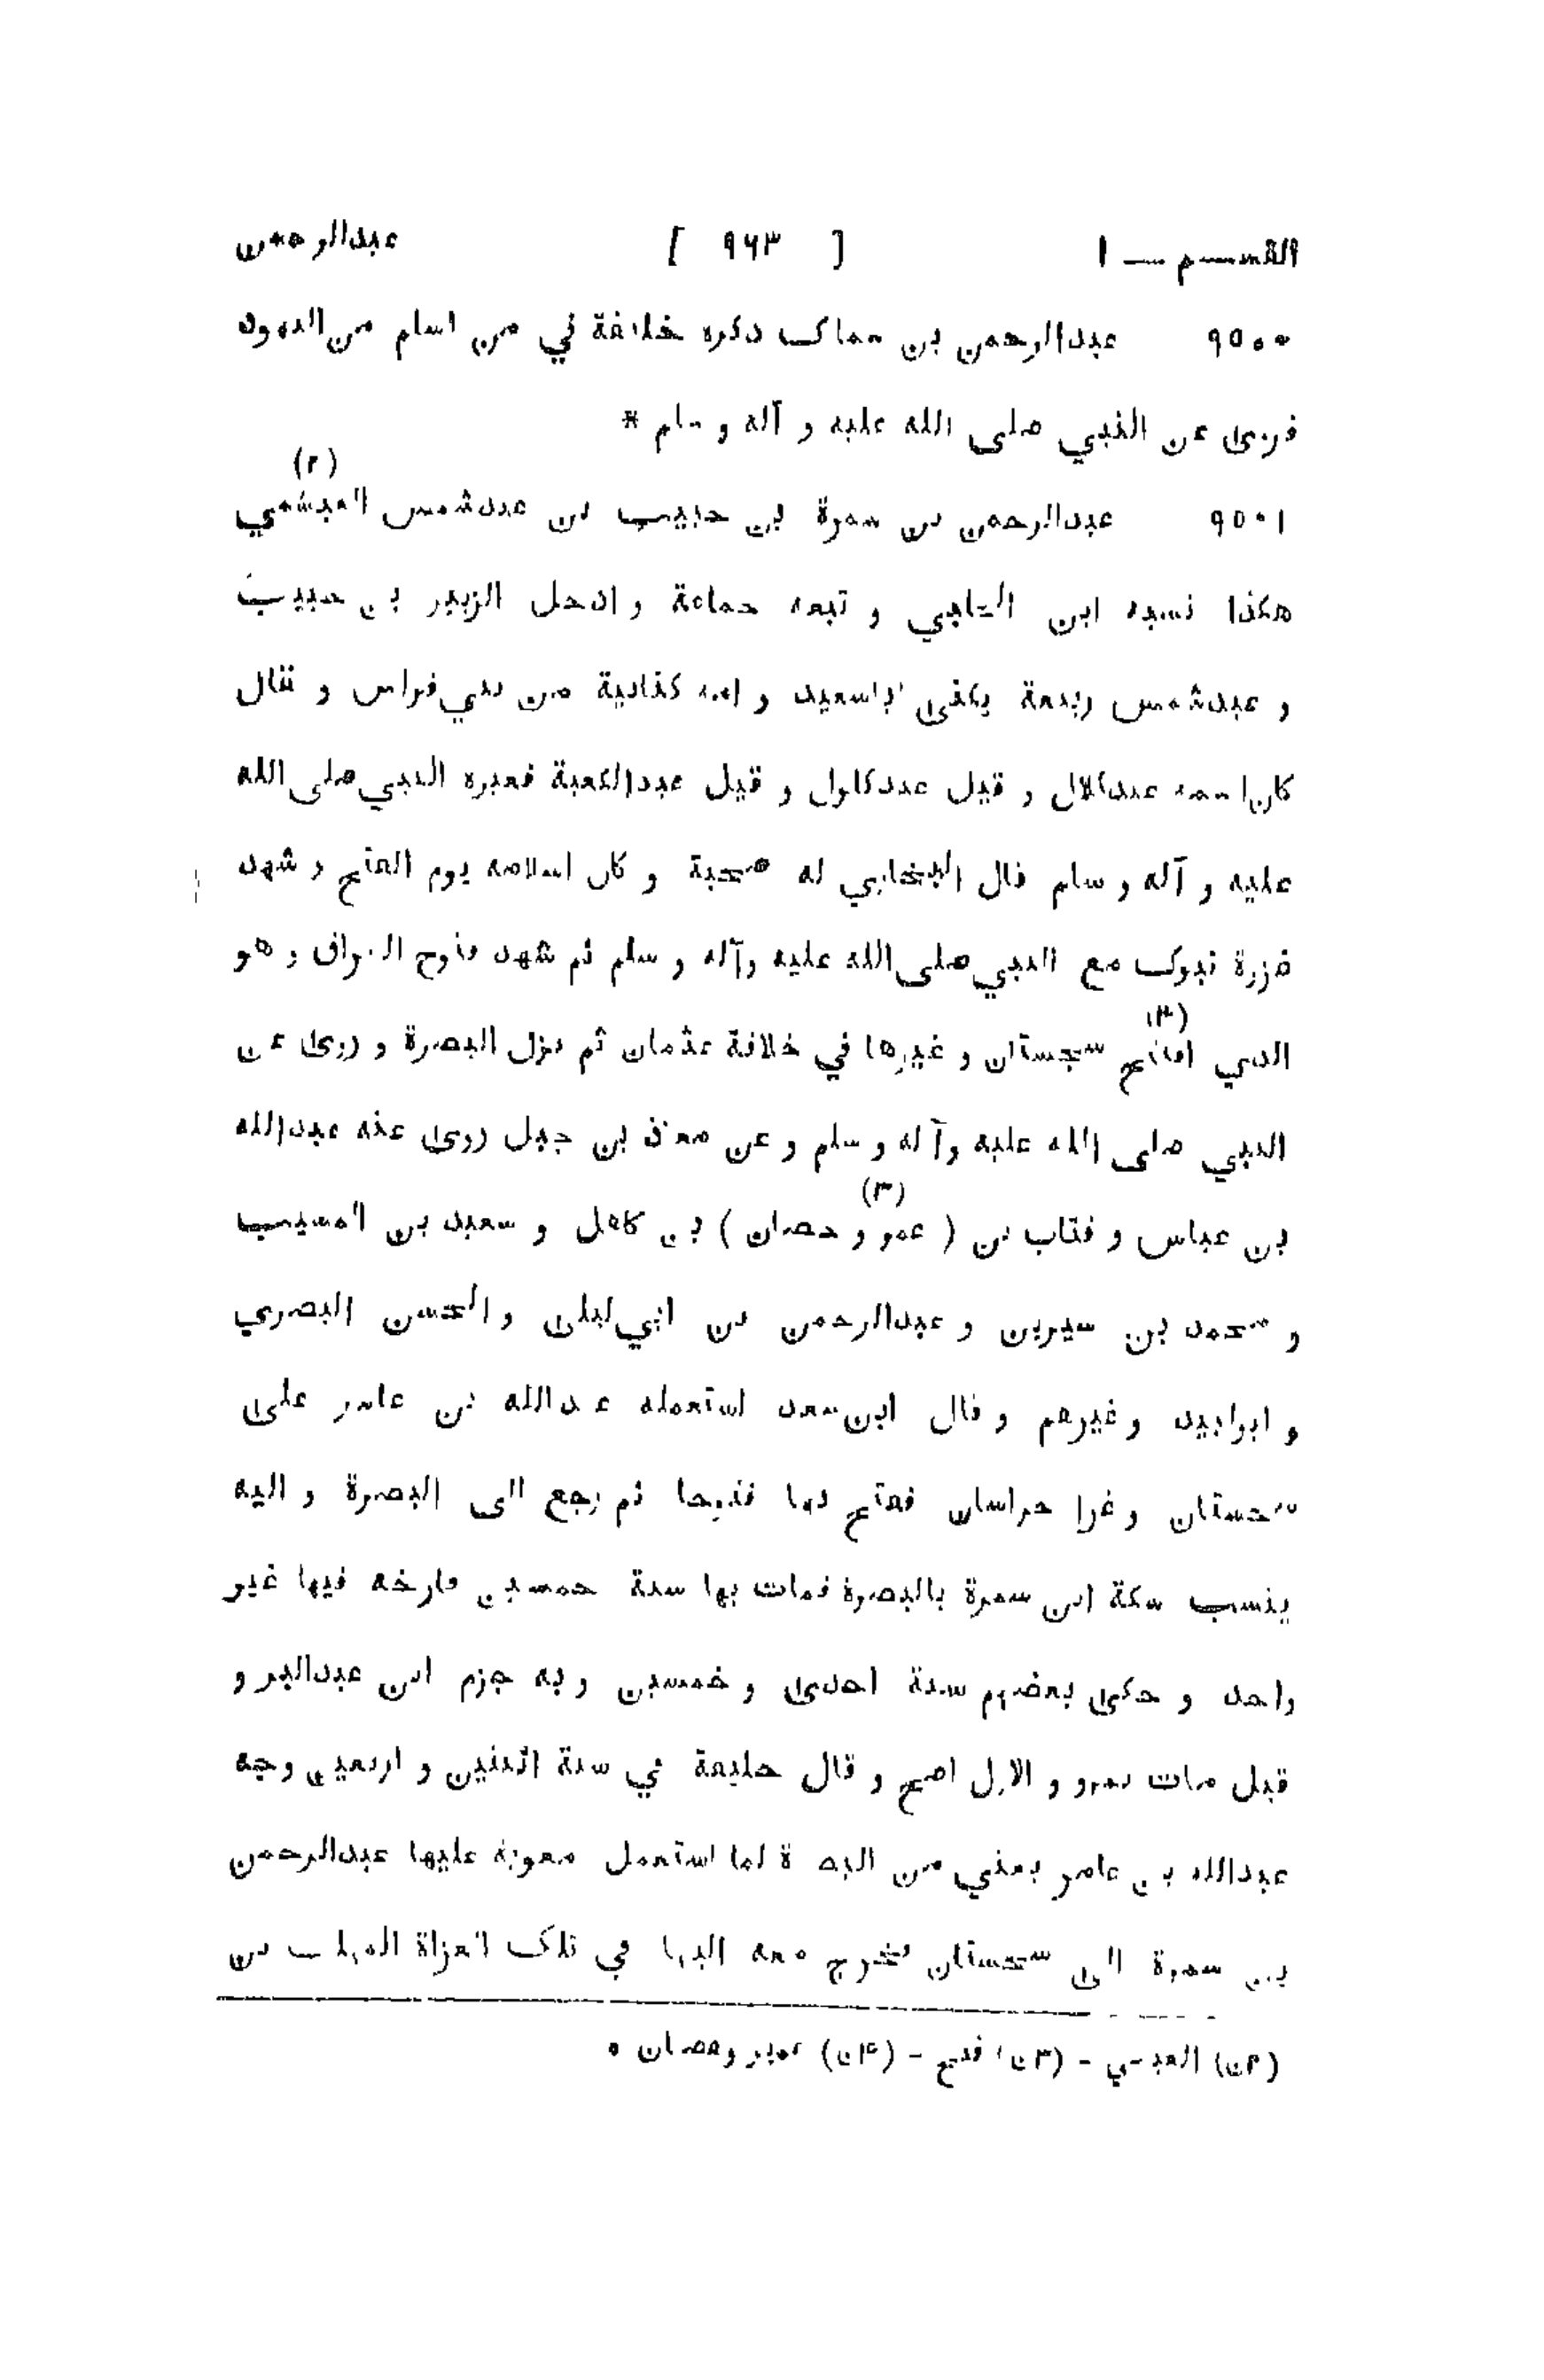 القسم — ١ [ ٩٦٣ ] عبدالرحمن
٩٥٠٠ عبدالرحمن بن سماك ذكره خليفة في من اسلم من اليهود
فروى عن النبي صلى الله عليه و آله و سلم *
٩٥٠١ عبدالرحمن بن سمرة بن حبيب بن عبدشمس العبشمي (٢)
هكذا نسبه ابن الكلبي و تبعه جماعة و ادخل الزبير بن حبيب
و عبدشمس ربيعة يكنى اباسعيد و امه كنانية من بني فراس و يقال
كان اسمه عبدكلال و قيل عبدكلول و قيل عبدالكعبة فغيره النبي صلى الله
عليه و آله و سلم قال البخاري له صحبة و كان اسلامه يوم الفتح و شهد
غزوة تبوك مع النبي صلى الله عليه وآله و سلم ثم شهد فتوح العراق و هو
الذي افتتح (٣) سجستان و غيرها في خلافة عثمان ثم نزل البصرة و روى عن
النبي صلى الله عليه وآله و سلم و عن معاذ بن جبل روى عنه عبدالله
بن عباس و قتاب بن ( عمر و حصان ) (٣) بن كاهل و سعيد بن المسيب
و محمد بن سيرين و عبدالرحمن بن ابي ليلى و الحسن البصري
و ابولبيد و غيرهم و قال ابن سعد استعمله عبدالله بن عامر على
سجستان و غزا خراسان ففتح بها فتوحا ثم رجع الى البصرة و اليه
ينسب سكة ابن سمرة بالبصرة فمات بها سنة خمسين فارخه فيها غير
واحد و حكى بعضهم سنة احدى و خمسين و به جزم ابن عبدالبر و
قيل مات بمرو و الاول اصح و قال خليفة في سنة اثنين و اربعين وجه
عبدالله بن عامر يعني من البصرة لما استعمل معوية عليها عبدالرحمن
بن سمرة الى سجستان فخرج معه اليها في تلك الغزاة المهلب بن
(٢ن) العبسي - (٣ن) فتح - (٤ن) عمير وهصان *